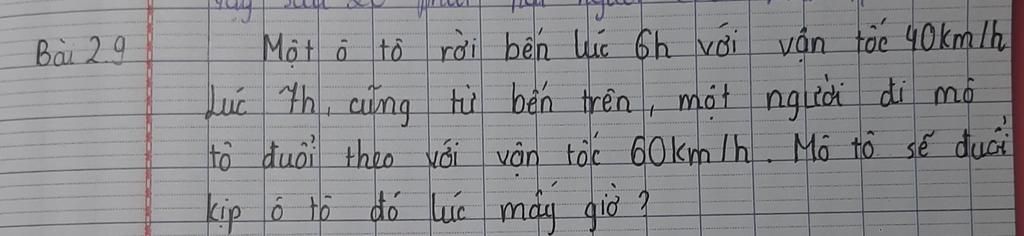 Bài 29 Một ô tô rời bến lúc 6h với vận tốc 40km/h
Lúc 7h, cũng từ bến trên, một người đi mô
tô đuổi theo với vận tốc 60km/h. Mô tô sẽ đuổi
kịp ô tô đó lúc mấy giờ?